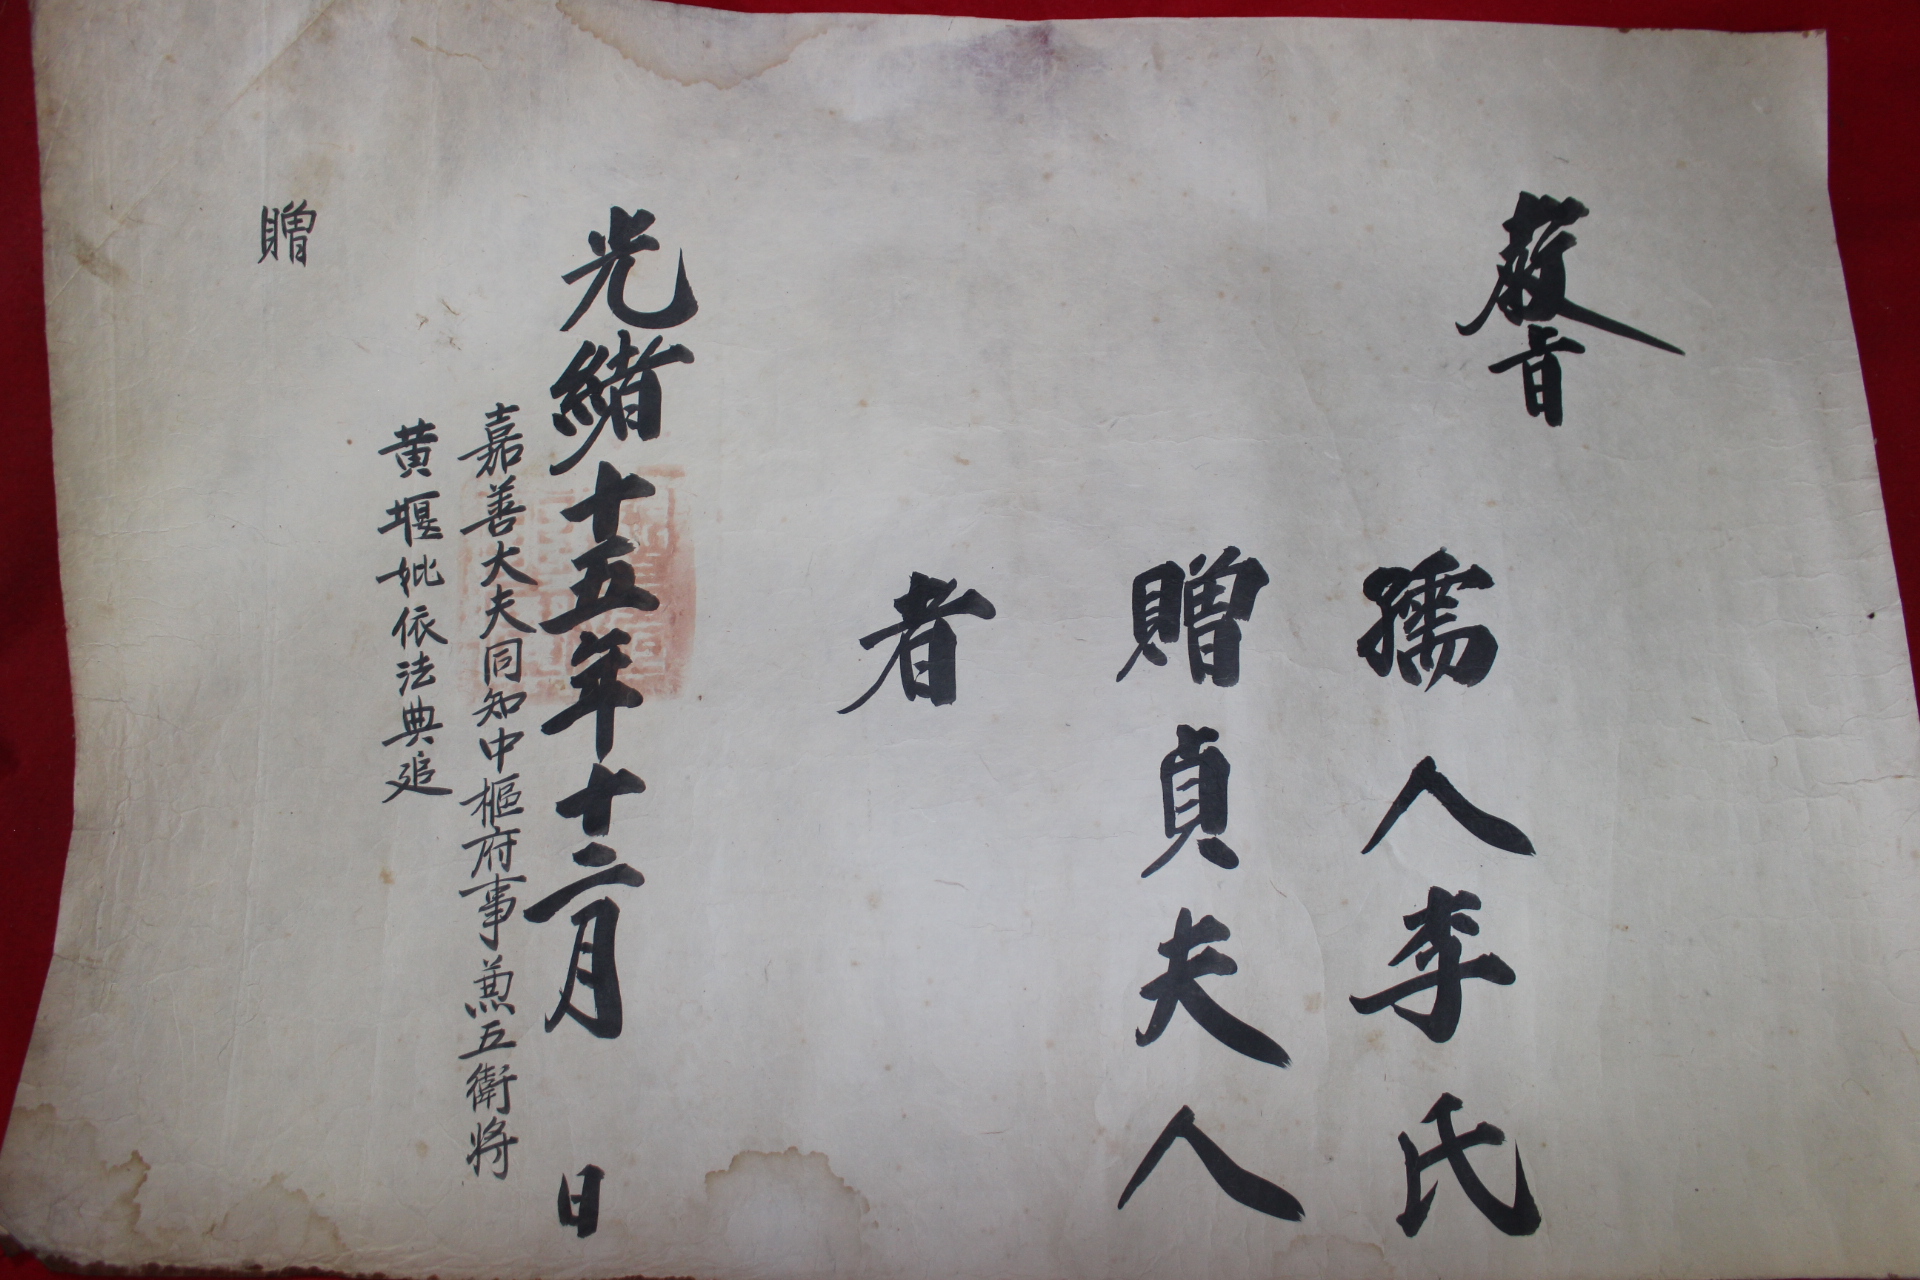 敎旨
孺人李氏
贈貞夫人
者
光緖十五年十二月 日
嘉善大夫同知中樞府事兼五衛將
黄堰妣依法典追
贈